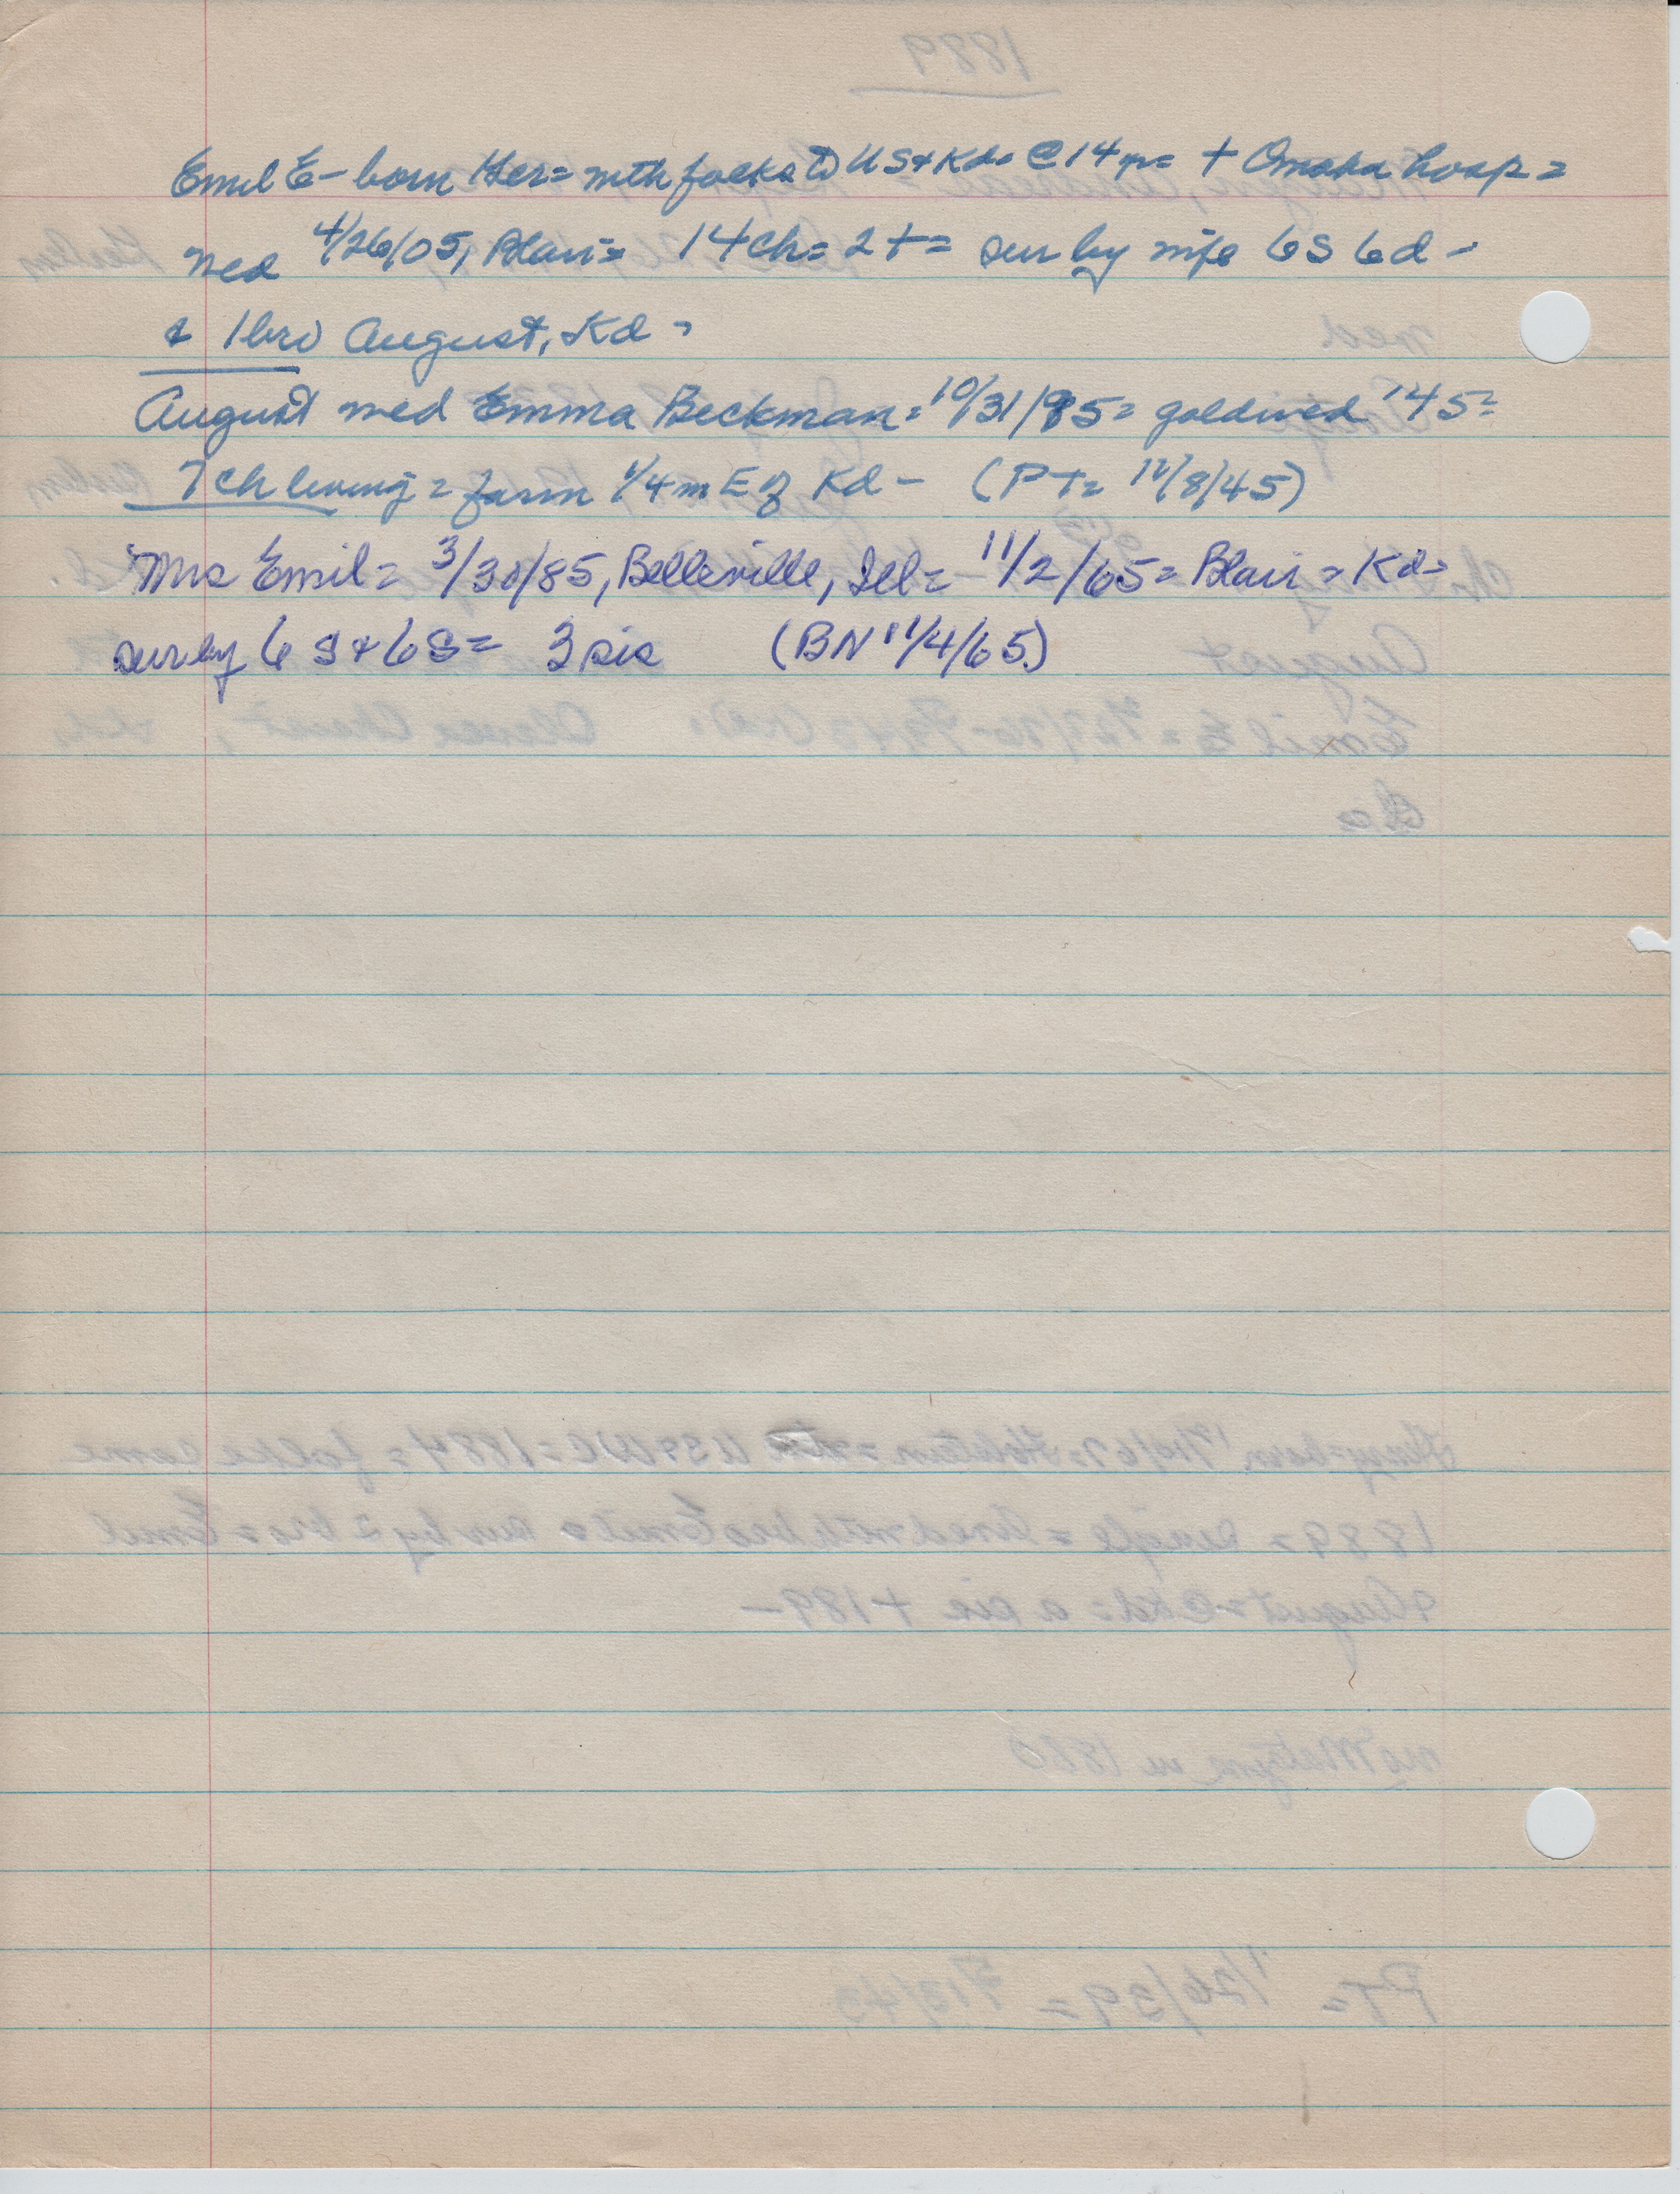 Emil E - born Ger = with folks to US & Kd = @ 14 yr = + Omaha hosp =
med 4/26/05, Blair = 14 ch = 2 + = sur by wife 6s 6d -
& 1 bro August, Kd -
August med Emma Beckman = 10/31/95 = gold wed '45 =
7 ch living = farm 1/4 m E of Kd - (PT = 11/8/45)
Mrs Emil = 3/30/85, Belleville, Ill = - 11/2/65 = Blair = Kd =
sur by 6 s & 6 S = 3 sis (BN 11/4/65)